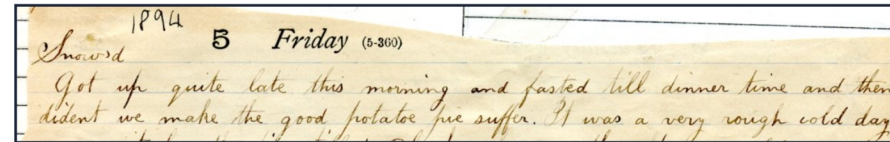 1894
5 Friday (5-360)
Snow'd
Got up quite late this morning and fasted till dinner time and then
dident we make the good potatoe pie suffer. It was a very rough cold day